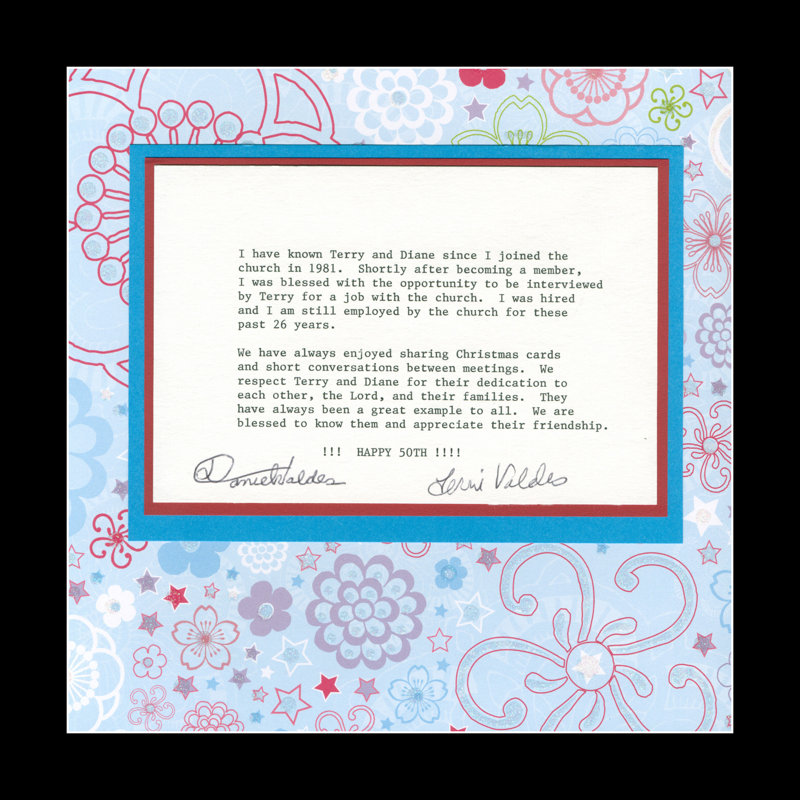 I have known Terry and Diane since I joined the
church in 1981.  Shortly after becoming a member,
I was blessed with the opportunity to be interviewed
by Terry for a job with the church.  I was hired
and I am still employed by the church for these
past 26 years.
We have always enjoyed sharing Christmas cards
and short conversations between meetings.  We
respect Terry and Diane for their dedication to
each other, the Lord, and their families.  They
have always been a great example to all.  We are
blessed to know them and appreciate their friendship.
!!!  HAPPY 50TH !!!!
Daniel Valdes Terri Valdes